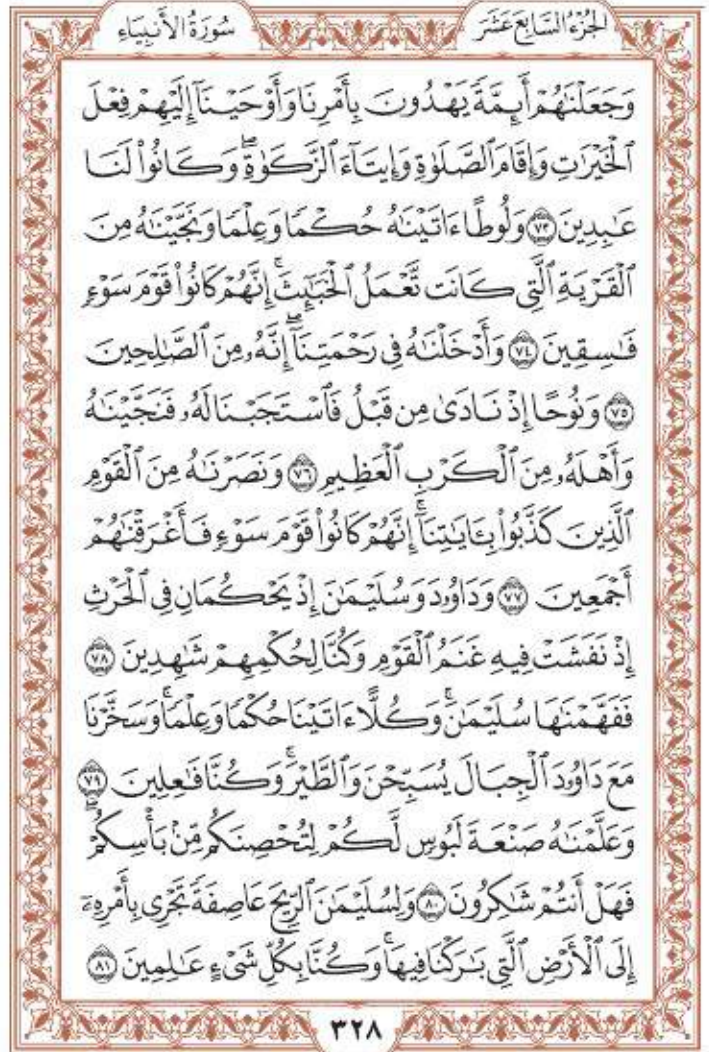 الجُزْءُ السَّابِعَ عَشَرَ سُورَةُ الأَنبِيَاءِ
وَجَعَلْنَٰهُمْ أَئِمَّةً يَهْدُونَ بِأَمْرِنَا وَأَوْحَيْنَآ إِلَيْهِمْ فِعْلَ
ٱلْخَيْرَٰتِ وَإِقَامَ ٱلصَّلَوٰةِ وَإِيتَآءَ ٱلزَّكَوٰةِۖ وَكَانُوا۟ لَنَا
عَٰبِدِينَ ٧٣ وَلُوطًا ءَاتَيْنَٰهُ حُكْمًا وَعِلْمًا وَنَجَّيْنَٰهُ مِنَ
ٱلْقَرْيَةِ ٱلَّتِى كَانَت تَّعْمَلُ ٱلْخَبَٰٓئِثَۚ إِنَّهُمْ كَانُوا۟ قَوْمَ سَوْءٍ
فَٰسِقِينَ ٧٤ وَأَدْخَلْنَٰهُ فِى رَحْمَتِنَآۖ إِنَّهُۥ مِنَ ٱلصَّٰلِحِينَ
٧٥ وَنُوحًا إِذْ نَادَىٰ مِن قَبْلُ فَٱسْتَجَبْنَا لَهُۥ فَنَجَّيْنَٰهُ
وَأَهْلَهُۥ مِنَ ٱلْكَرْبِ ٱلْعَظِيمِ ٧٦ وَنَصَرْنَٰهُ مِنَ ٱلْقَوْمِ
ٱلَّذِينَ كَذَّبُوا۟ بِـَٔايَٰتِنَآۚ إِنَّهُمْ كَانُوا۟ قَوْمَ سَوْءٍ فَأَغْرَقْنَٰهُمْ
أَجْمَعِينَ ٧٧ وَدَاوُۥدَ وَسُلَيْمَٰنَ إِذْ يَحْكُمَانِ فِى ٱلْحَرْثِ
إِذْ نَفَشَتْ فِيهِ غَنَمُ ٱلْقَوْمِ وَكُنَّا لِحُكْمِهِمْ شَٰهِدِينَ ٧٨
فَفَهَّمْنَٰهَا سُلَيْمَٰنَۚ وَكُلًّا ءَاتَيْنَا حُكْمًا وَعِلْمًاۚ وَسَخَّرْنَا
مَعَ دَاوُۥدَ ٱلْجِبَالَ يُسَبِّحْنَ وَٱلطَّيْرَۚ وَكُنَّا فَٰعِلِينَ ٧٩
وَعَلَّمْنَٰهُ صَنْعَةَ لَبُوسٍ لَّكُمْ لِتُحْصِنَكُم مِّنۢ بَأْسِكُمْۖ
فَهَلْ أَنتُمْ شَٰكِرُونَ ٨٠ وَلِسُلَيْمَٰنَ ٱلرِّيحَ عَاصِفَةً تَجْرِى بِأَمْرِهِۦٓ
إِلَى ٱلْأَرْضِ ٱلَّتِى بَٰرَكْنَا فِيهَاۚ وَكُنَّا بِكُلِّ شَىْءٍ عَٰلِمِينَ ٨١
٣٢٨